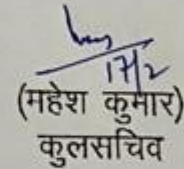 17/2
(महेश कुमार)
कुलसचिव